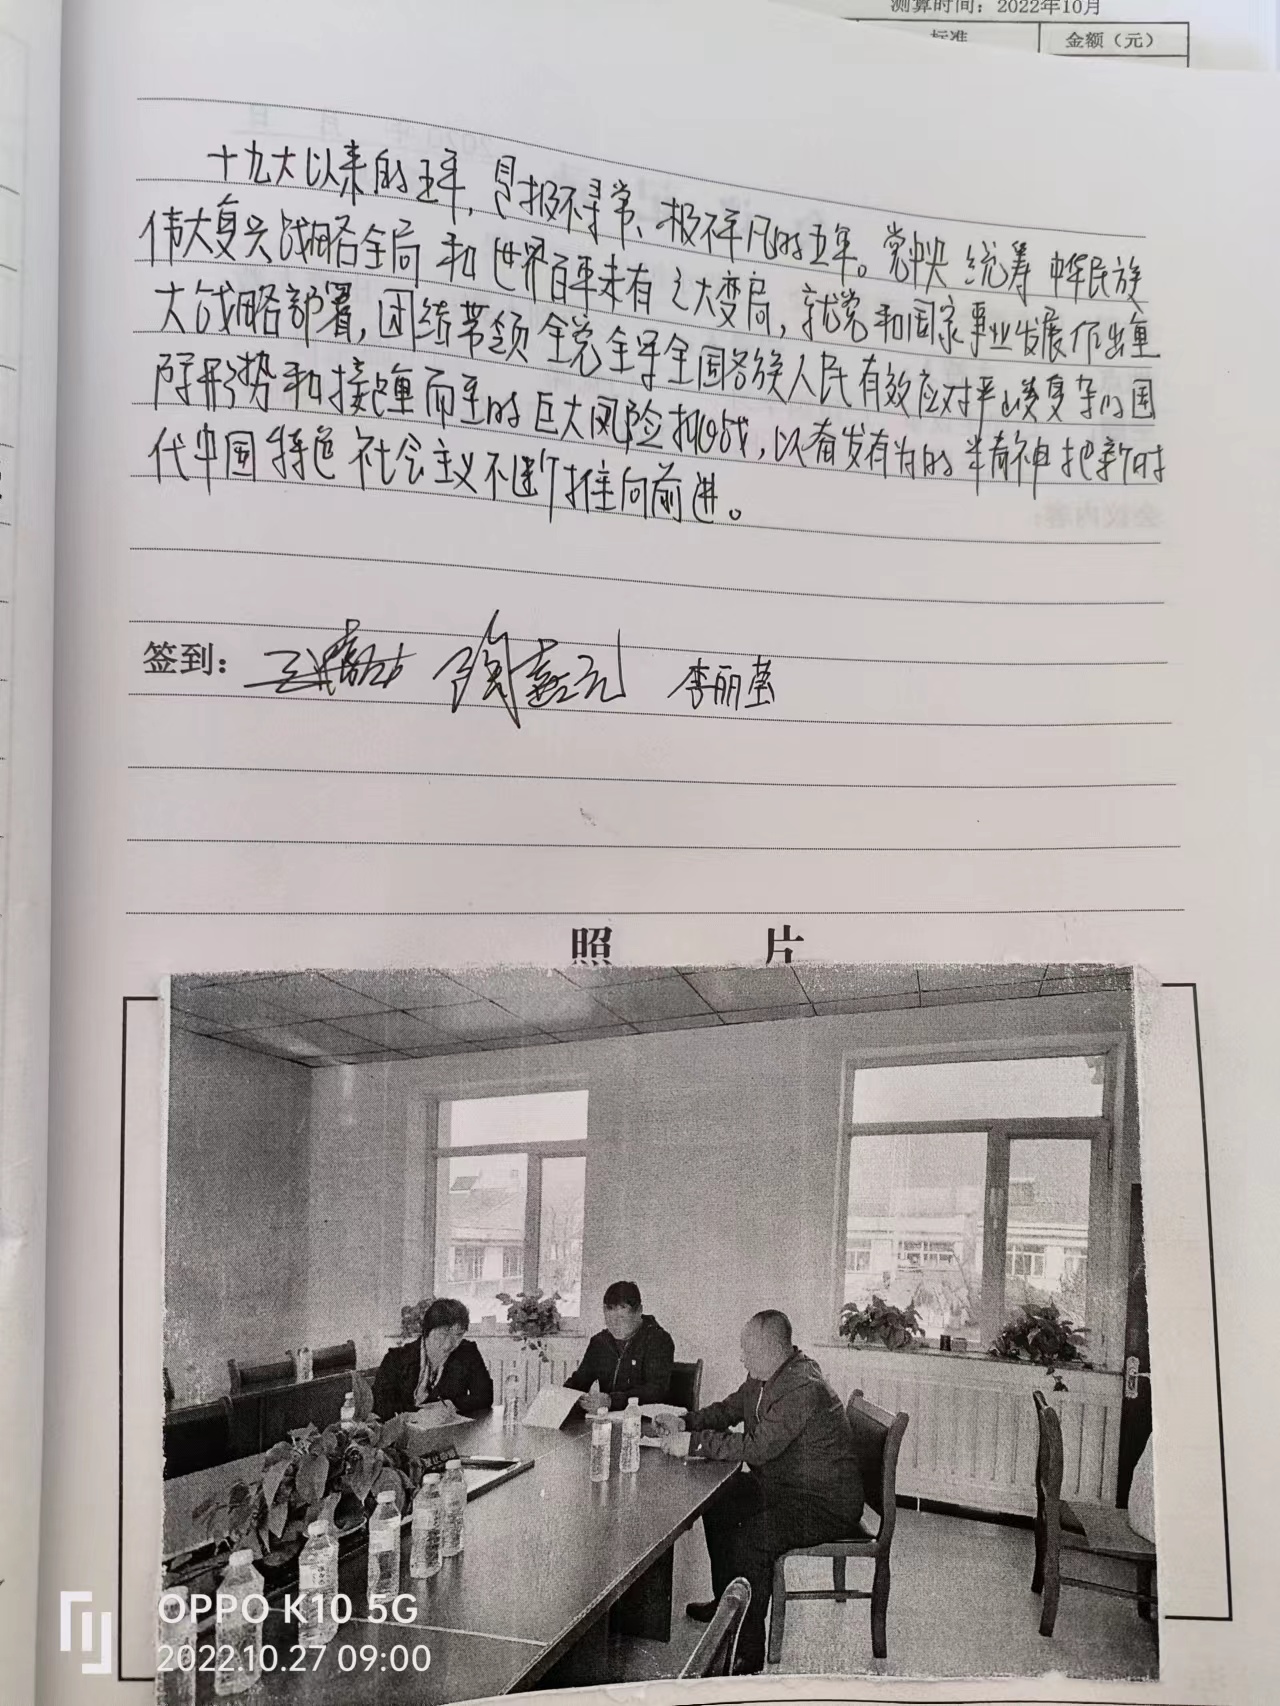 测算时间：2022年10月
标准 金额（元）
十九大以来的五年，是极不寻常、极不平凡的五年。党中央统筹中华民族
伟大复兴战略全局和世界百年未有之大变局，就党和国家事业发展作出重
大战略部署，团结带领全党全军全国各族人民有效应对严峻复杂的国
际形势和接踵而至的巨大风险挑战，以奋发有为的精神把新时
代中国特色社会主义不断推向前进。
签到： 李丽莹
照 片
OPPO K10 5G
2022.10.27 09:00